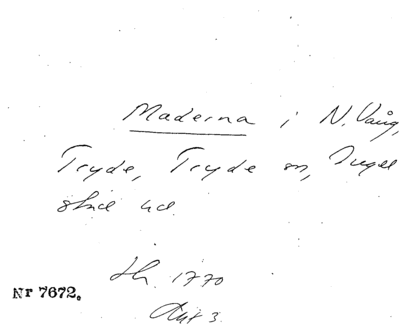 Maderna i N. Vång,
Tryde, Tryde sn, Ingel
stad hd.
Nr 7672.
1770
Akt 3